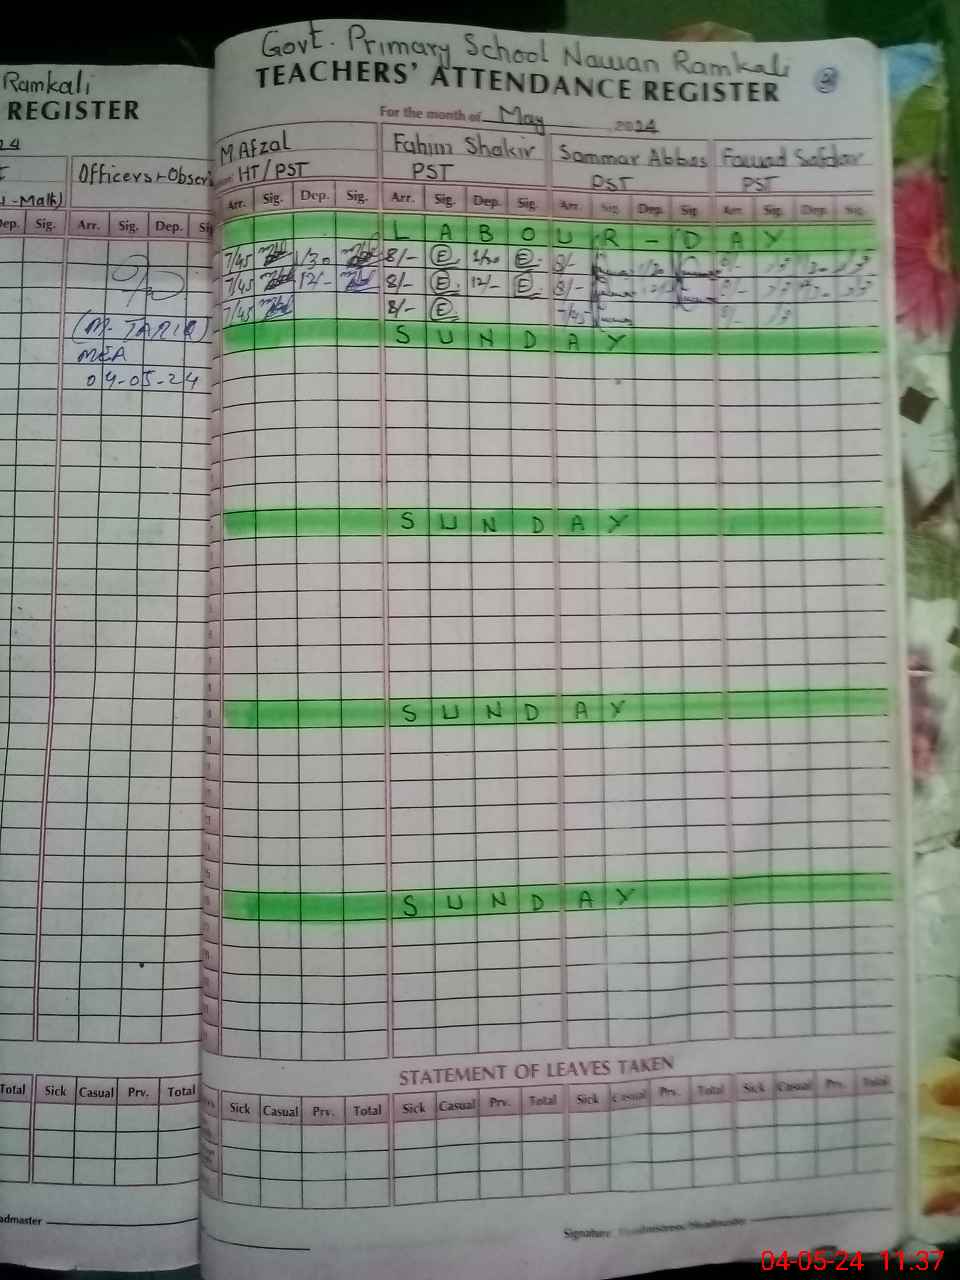 Ramkali
REGISTER
24
Officers, Obser
-Math)
Dep. Sig. Arr. Sig. Dep. Sig
(M. TARIQ)
MEA
04-05-24
Total Sick Casual Prv. Total
admaster
Govt. Primary School Nawan Ramkali
TEACHERS' ATTENDANCE REGISTER
For the month of May 2024
M. Afzal Fahim Shakir Sammar Abbas Fawad Safdar
HT/PST PST PST PST
Arr. Sig. Dep. Sig. Arr. Sig. Dep. Sig. Arr. Sig. Dep. Sig. Arr. Sig. Dep. Sig.
LABOUR - DAY
7/45 1/30 8/- 1/30 8/- 1/30 8/-
7/45 12/- 8/- 12/- 8/- 12/- 8/-
7/45 8/- 7/45 8/-
SUNDAY
SUNDAY
SUNDAY
SUNDAY
STATEMENT OF LEAVES TAKEN
Sick Casual Prv. Total Sick Casual Prv. Total Sick Casual Prv. Total Sick Casual Prv. Total
Signature Headmistress/Headmaster
04-05-24 11.37